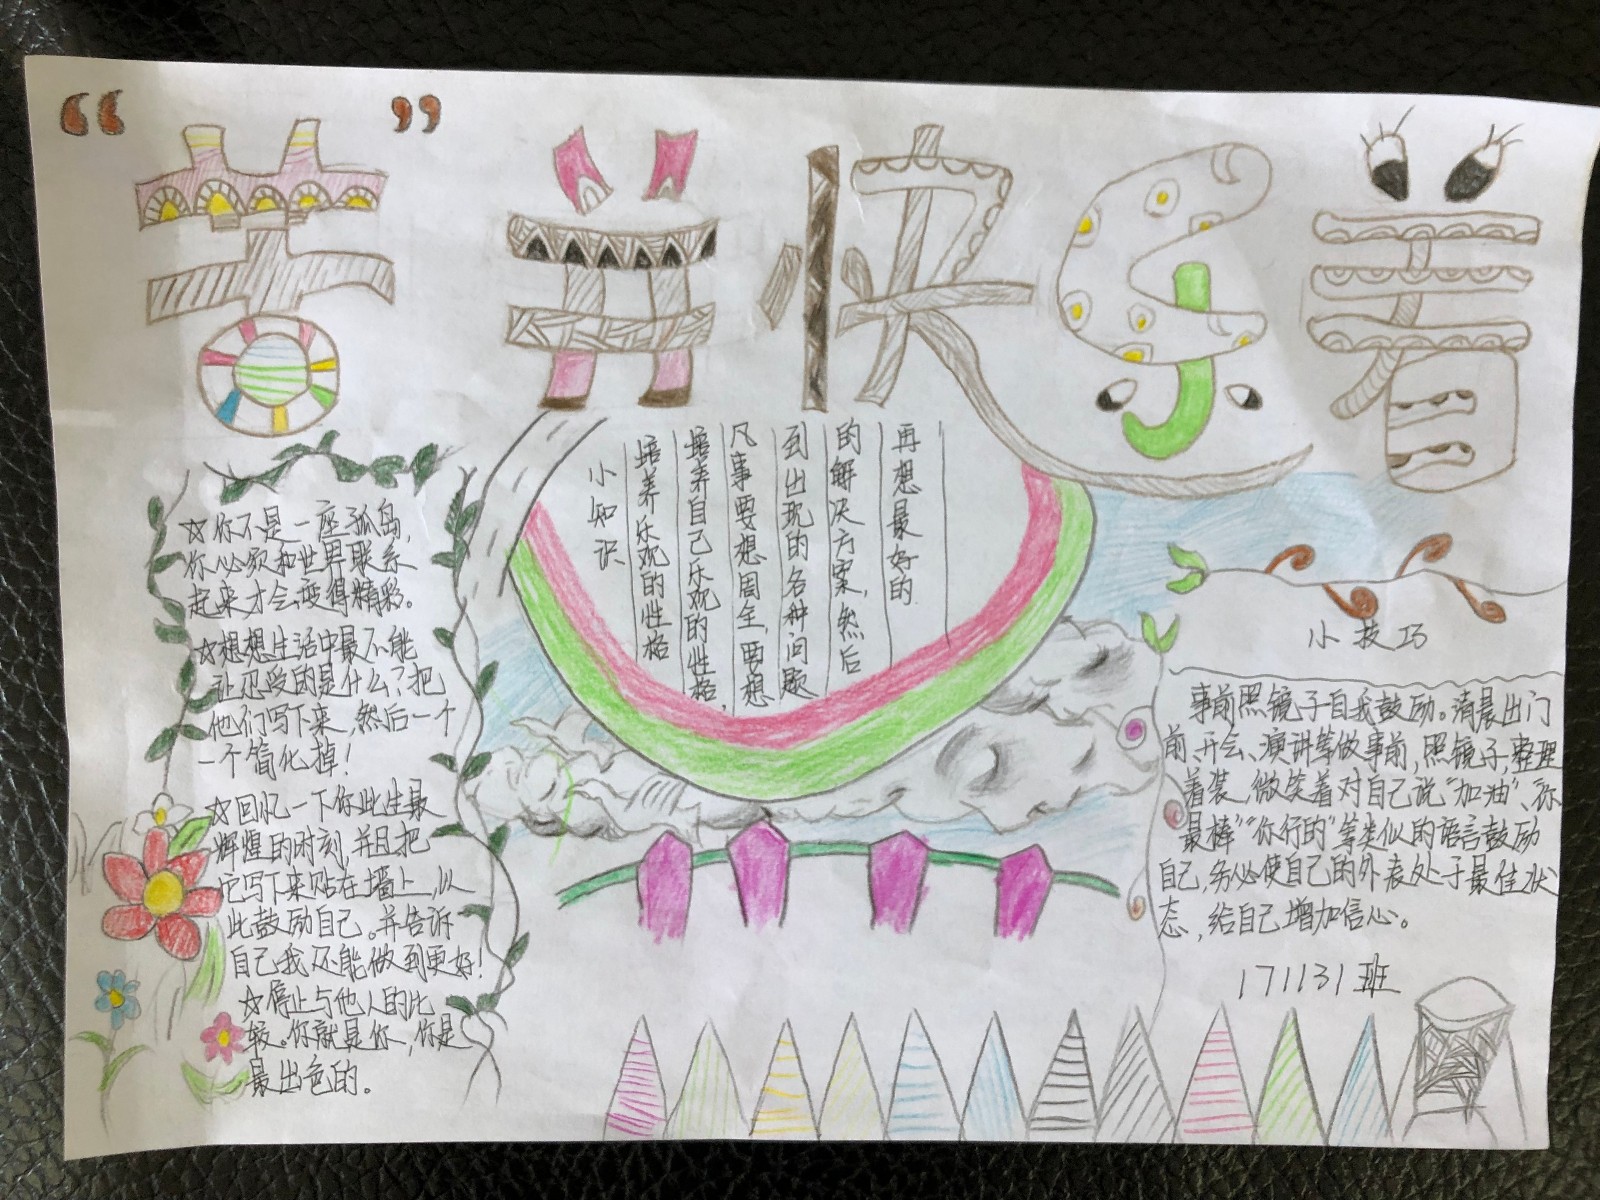 “苦”并快乐着
☆你不是一座孤岛，
你必须和世界联系
起来,才会变得精彩。
☆想想生活中最不能
让忍受的是什么？把
他们写下来,然后一个
一个简化掉！
☆回忆一下你此生最
辉煌的时刻,并且把
它写下来贴在墙上,以
此鼓励自己。并告诉
自己我还能做到更好！
☆停止与他人的比
较。你就是你,你是
最出色的。
小知识
培养乐观的性格
培养自己乐观的性格，
凡事要想周全，要想
到出现的各种问题
的解决方案，然后
再想最好的
小技巧
事前照镜子自我鼓励。清晨出门
前、开会、演讲等做事前,照镜子,整理
着装,微笑着对自己说“加油”、“你
最棒”“你行的”等类似的语言鼓励
自己,务必使自己的外表处于最佳状
态,给自己增加信心。
171131班